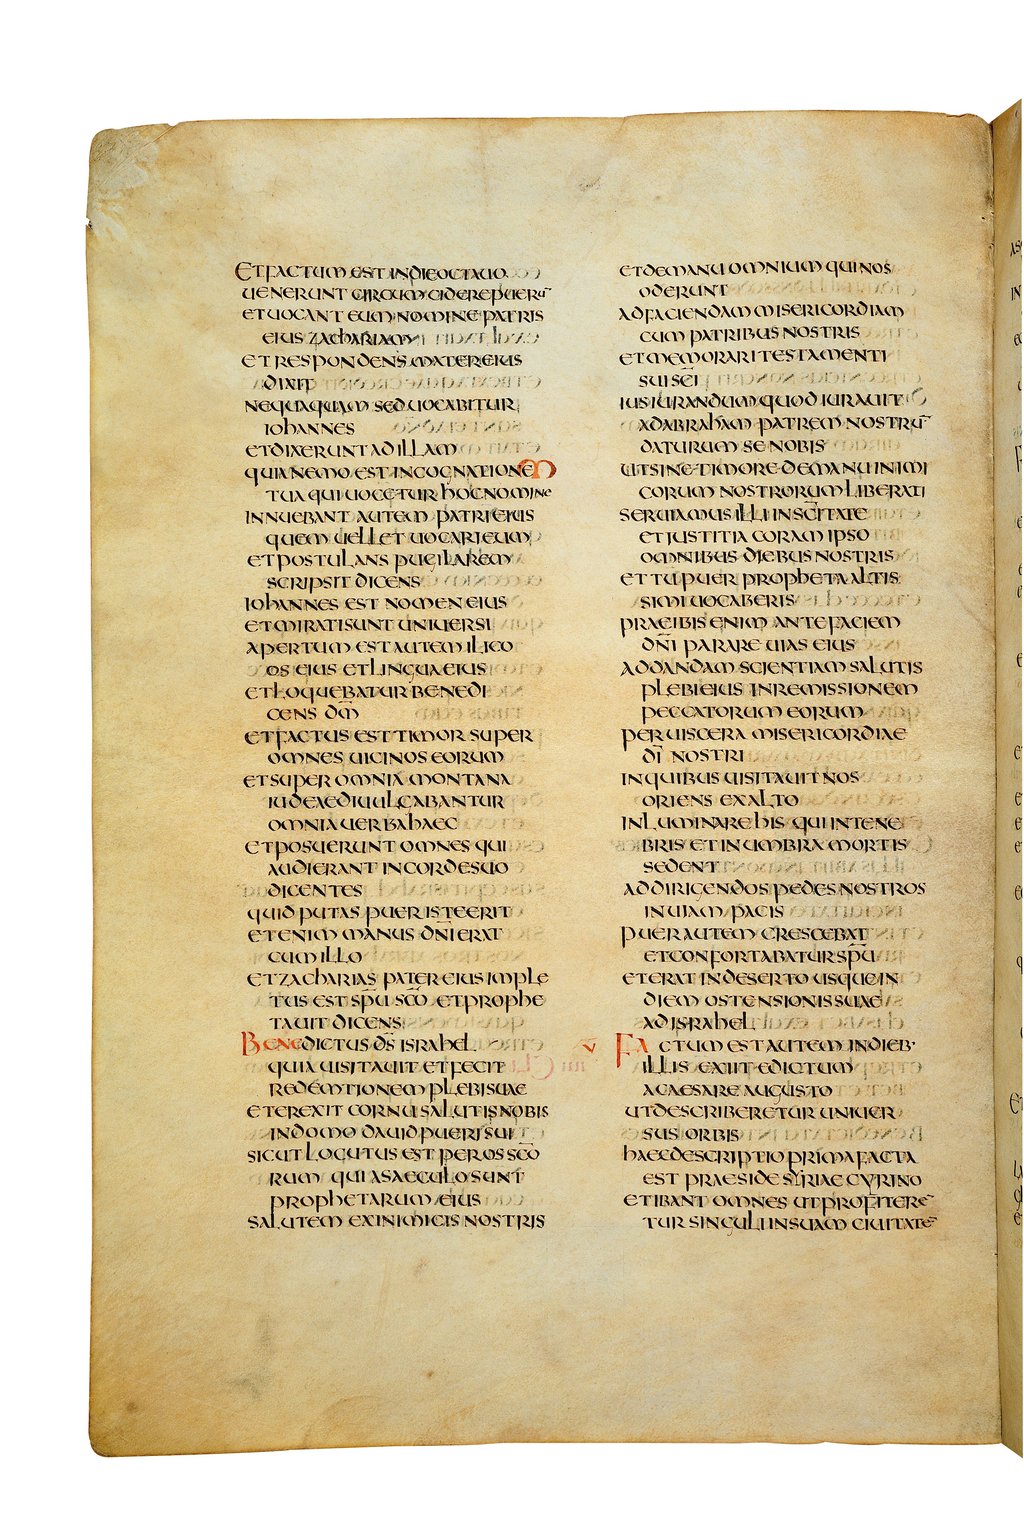 ET FACTUM EST IN DIE OCTAUO
UENERUNT CIRCUMCIDERE PUERŪ
ET UOCANT EUM NOMINE PATRIS
EIUS ZACHARIAM
ET RESPONDENS MATER EIUS
DIXIT
NEQUAQUAM SED UOCABITUR
IOHANNES
ET DIXERUNT AD ILLAM
QUIA NEMO EST IN COGNATIONE
TUA QUI UOCETUR HOC NOMINE
INNUEBANT AUTEM PATRI EIUS
QUEM UELLET UOCARI EUM
ET POSTULANS PUGILAREM
SCRIPSIT DICENS
IOHANNES EST NOMEN EIUS
ET MIRATI SUNT UNIUERSI
APERTUM EST AUTEM ILICO
OS EIUS ET LINGUA EIUS
ET LOQUEBATUR BENEDI
CENS D̄M̄
ET FACTUS EST TIMOR SUPER
OMNES UICINOS EORUM
ET SUPER OMNIA MONTANA
IUDEAE DIUULGABANTUR
OMNIA UERBA HAEC
ET POSUERUNT OMNES QUI
AUDIERANT IN CORDE SUO
DICENTES
QUID PUTAS PUER ISTE ERIT
ETENIM MANUS D̄N̄I ERAT
CUM ILLO
ET ZACHARIAS PATER EIUS IMPLE
TUS EST SP̄U SC̄O ET PROPHE
TAUIT DICENS
BENEDICTUS D̄S̄ ISRAHEL
QUIA UISITAUIT ET FECIT
REDEMTIONEM PLEBI SUAE
ET EREXIT CORNU SALUTIS NOBIS
IN DOMO DAUID PUERI SUI
SICUT LOCUTUS EST PER OS SC̄O
RUM QUI A SAECULO SUNT
PROPHETARUM EIUS
SALUTEM EX INIMICIS NOSTRIS
ET DE MANU OMNIUM QUI NOS
ODERUNT
AD FACIENDAM MISERICORDIAM
CUM PATRIBUS NOSTRIS
ET MEMORARI TESTAMENTI
SUI SC̄I
IUSIURANDUM QUOD IURAUIT
AD ABRAHAM PATREM NOSTRŪ
DATURUM SE NOBIS
UT SINE TIMORE DE MANU INIMI
CORUM NOSTRORUM LIBERATI
SERUIAMUS ILLI IN SC̄ITATE
ET IUSTITIA CORAM IPSO
OMNIBUS DIEBUS NOSTRIS
ET TU PUER PROPHETA ALTIS
SIMI UOCABERIS
PRAEIBIS ENIM ANTE FACIEM
D̄N̄I PARARE UIAS EIUS
AD DANDAM SCIENTIAM SALUTIS
PLEBI EIUS IN REMISSIONEM
PECCATORUM EORUM
PER UISCERA MISERICORDIAE
D̄I NOSTRI
IN QUIBUS UISITAUIT NOS
ORIENS EX ALTO
INLUMINARE HIS QUI IN TENE
BRIS ET IN UMBRA MORTIS
SEDENT
AD DIRIGENDOS PEDES NOSTROS
IN UIAM PACIS
PUER AUTEM CRESCEBAT
ET CONFORTABATUR SP̄U
ET ERAT IN DESERTO USQUE IN
DIEM OSTENSIONIS SUAE
AD ISRAHEL
V FACTUM EST AUTEM IN DIEB·
ILLIS EXIIT EDICTUM
A CAESARE AUGUSTO
UT DESCRIBERETUR UNIUER
SUS ORBIS
HAEC DESCRIPTIO PRIMA FACTA
EST PRAESIDE SYRIAE CYRINO
ET IBANT OMNES UT PROFITERĒ
TUR SINGULI IN SUAM CIUITATĒ